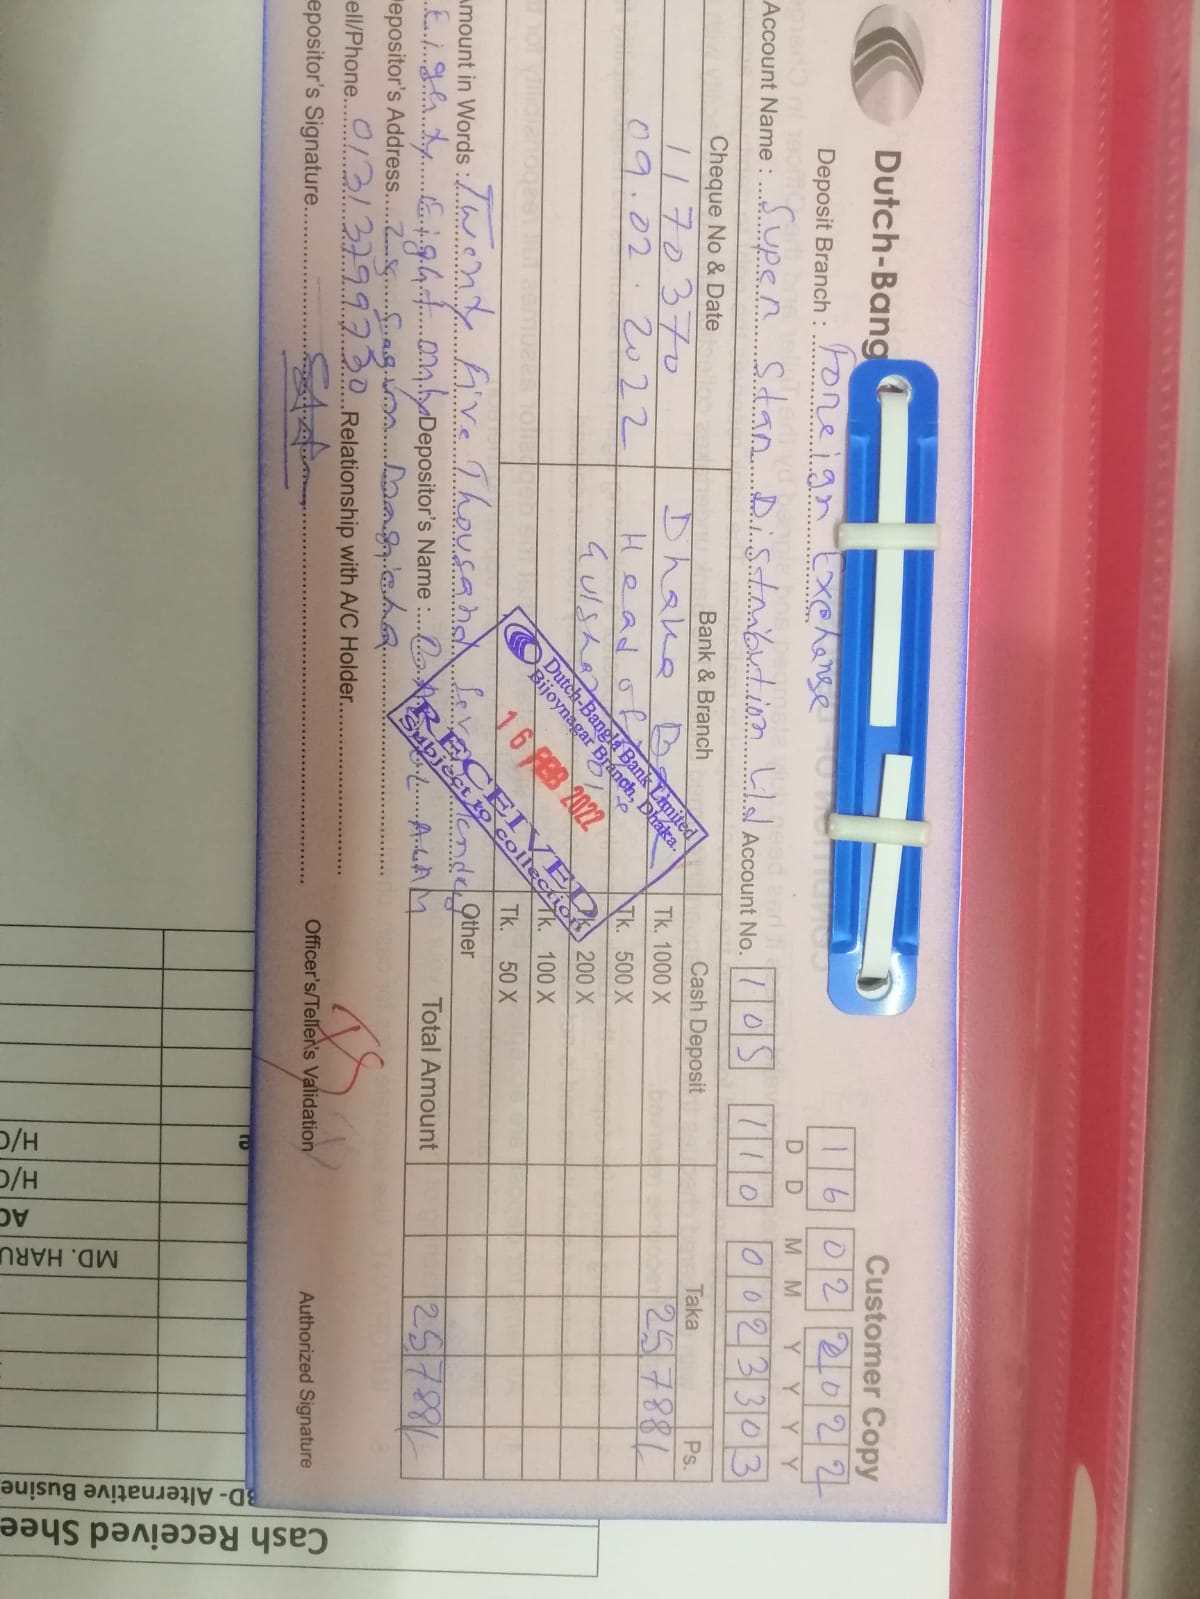 Dutch-Bang
Customer Copy
Deposit Branch : Foreign Exchange
16 02 2022
D D M M Y Y Y Y
Account Name : Super Star Distribution Ltd Account No. 105 110 0023303
Cheque No & Date Bank & Branch Cash Deposit Taka Ps.
1170370 Dhaka Tk. 1000 X 25,788/-
09.02.2022 Head office Tk. 500 X
Gulshan Tk. 200 X
Tk. 100 X
Tk. 50 X
Dutch-Bangla Bank Limited
Bijoynagar Branch, Dhaka.
16 FEB 2022
RECEIVED
Subject to collection
Amount in Words : Twenty five Thousand Seven Hundred Other
Eighty Eight only Depositor's Name : ALAM Total Amount 25,788/-
Depositor's Address 28 Segun Bagicha
ell/Phone 01313799730 Relationship with A/C Holder
epositor's Signature Officer's/Teller's Validation Authorized Signature
Cash Received Shee
BD- Alternative Busine
MD. HARU
AC
H/C
H/C